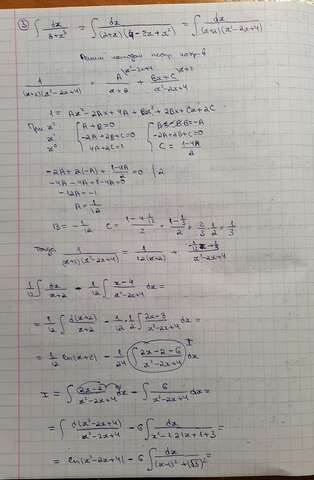 ③ ∫ dx/(8+x³) = ∫ dx/((2+x)(4-2x+x²)) = ∫ dx/((x+2)(x²-2x+4))
1/((x+2)(x²-2x+4)) = A^(x²-2x+4)/(x+2) + (Bx+C)^(x+2)/(x²-2x+4)
1 = Ax²-2Ax+4A+Bx²+2Bx+Cx+2C
При x² { A+B=0 { B=-A
x { -2A+2B+C=0 { -2A+2B+C=0
x⁰ { 4A+2C=1 { C = (1-4A)/2
-2A+2(-A)+(1-4A)/2=0 |·2
-4A-4A+1-4A=0
-12A=-1
A=1/12
B=-1/12 C=(1-4·1/12)/2=(1-1/3)/2=2/3·1/2=1/3
Тогда 1/((x+2)(x²-2x+4)) = 1/(12(x+2)) + (-1/12x+1/3)/(x²-2x+4)
1/12∫dx/(x+2) - 1/12∫(x-4)/(x²-2x+4)dx=
=1/12∫d(x+2)/(x+2) - 1/12·1/2∫(2x-8)/(x²-2x+4)dx=
=1/12 ln(x+2) - 1/24 ∫(2x-2-6)/(x²-2x+4)dx I
I = ∫(2x-2)/(x²-2x+4)dx - ∫6/(x²-2x+4)dx=
=∫d(x²-2x+4)/(x²-2x+4) - 6∫dx/(x²-2x+1+3)=
=ln(x²-2x+4) - 6∫dx/((x-1)²+(√3)²)=